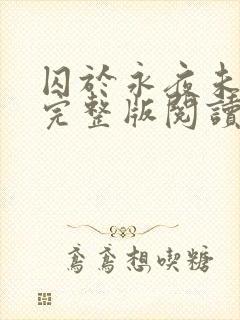 囚於永夜未
完整版閱讀
鳶鳶想喫糖